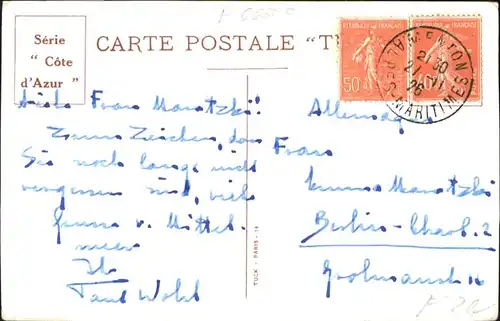 Série
" Côte
d'Azur "
CARTE POSTALE "T
REPUBLIQUE FRANÇAISE
REPUBLIQUE FRANÇAISE
50
40
MENTON
21 30
27 - 11
26
ALPES-MARITIMES
Frau Maratzki!
Zum Zeichen, dass
Sie noch lange nicht
vergessen sind, viele
Grüsse v. Mittel-
meer
Ihr
Paul Wohl
TUCK - PARIS - 14
Allemag
Frau
Maratzki
Berlin-Charl. 2
Grolmanstr